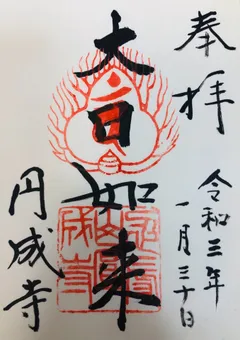 奉拝
令和三年
一月三十日
大日如来
円成寺